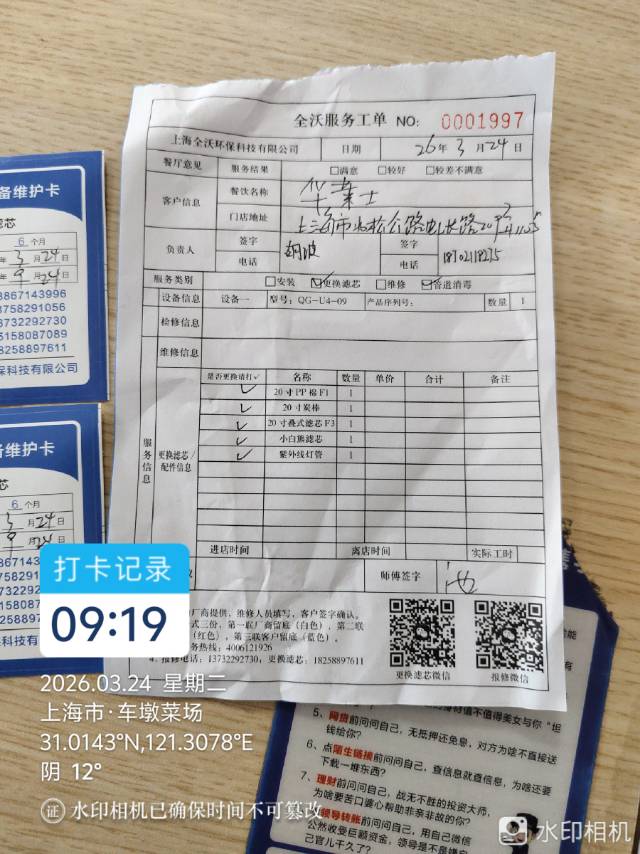 全沃服务工单 NO: 0001997
上海全沃环保科技有限公司 日期 26年3月24日
餐厅意见 服务结果 □满意 □较好 □较差不满意
客户信息 餐饮名称 华莱士
门店地址 上海市北松公路
负责人 签字 签字
电话 电话
服务类别 □安装 ☑更换滤芯 □维修 ☑管道消毒
设备信息 设备一 型号: QG-U4-09 产品序列号: 数量 1
检修信息
维修信息
服务信息 更换滤芯/配件信息
是否更换请打✓ 名称 数量 单价 合计 备注
✓ 20寸PP棉F1 1
✓ 20寸炭棒 1
✓ 20寸叠式滤芯F3 1
✓ 小白熊滤芯 1
✓ 紫外线灯管 1
进店时间 离店时间 实际工时
议 师傅签字
厂商提供，维修人员填写，客户签字确认。
式三份，第一联厂商留底（白色），第二联
（红色），第三联客户留底（蓝色）。
务热线：4006121926
4、报修电话：13732292730，更换滤芯：18258897611
更换滤芯微信 报修微信
备维护卡
芯
6 个月
年 3 月 24 日
年 9 月 24 日
8867143996
8758291056
3732292730
5158087089
8258897611
保科技有限公司
备维护卡
芯
6 个月
3 月 24 日
9 月 24 日
打卡记录
09:19
2026.03.24 星期二
上海市·车墩菜场
31.0143°N,121.3078°E
阴 12°
证 水印相机已确保时间不可篡改
5、网贷前问问自己，无抵押还免息，对方为啥不直接送
钱给你？
6、点陌生链接前问问自己，查信息就查信息，为啥还要
下载一堆东西？
7、理财前问问自己，战无不胜的投资大师，
为啥要苦口婆心帮助非亲非故的你？
领导转账前问问自己，用自己微信
公然收受巨额资金，领导是不是嫌
己官儿干久了？
水印相机